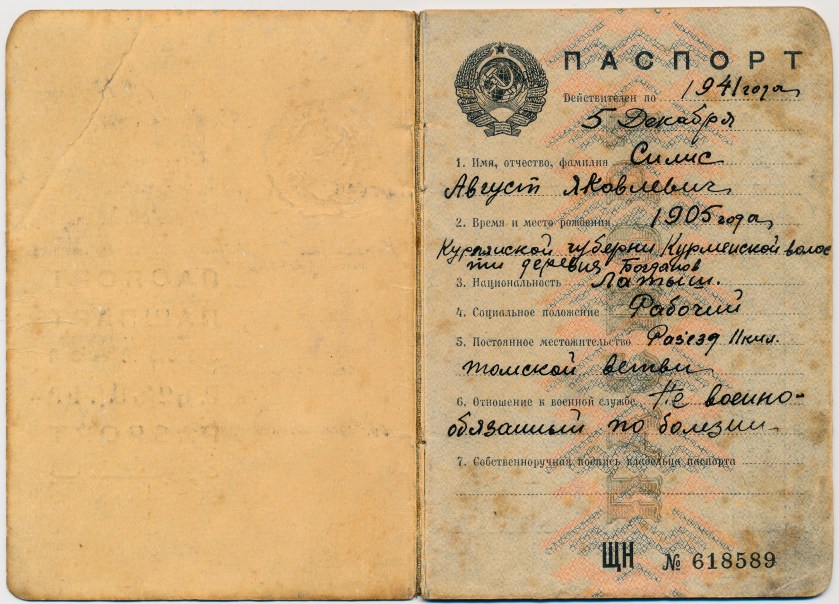 ПАСПОРТ
Действителен по 1941 года
5 Декабря
1. Имя, отчество, фамилия Силис
Август Яковлевич
2. Время и место рождения 1905 года
губерни Курменской волос
ти деревня Богданов
3. Национальность Латыш.
4. Социальное положение Рабочий
5. Постоянное местожительство Раз'езд 11 кил.
томской ветви
6. Отношение к военной службе Не военно-
обязанный по болезни
7. Собственноручная подпись владельца паспорта
ЩН № 618589